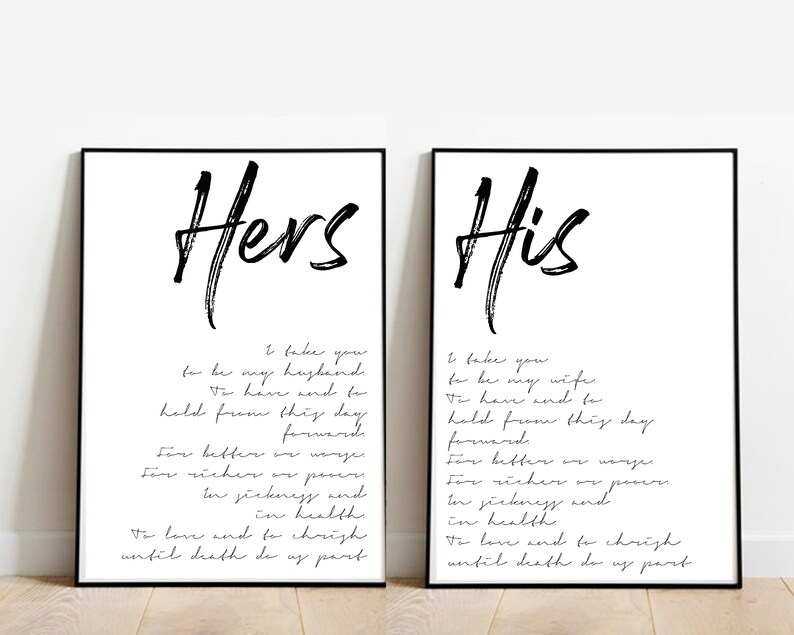 Hers
I take you
to be my husband.
To have and to
hold from this day
forward.
For better or worse.
For richer or pooer.
In sickness and
in health.
To love and to chrish
until death do us part
His
I take you
to be my wife.
To have and to
hold from this day
forward.
For better or worse.
For richer or pooer.
In sickness and
in health.
To love and to chrish
until death do us part